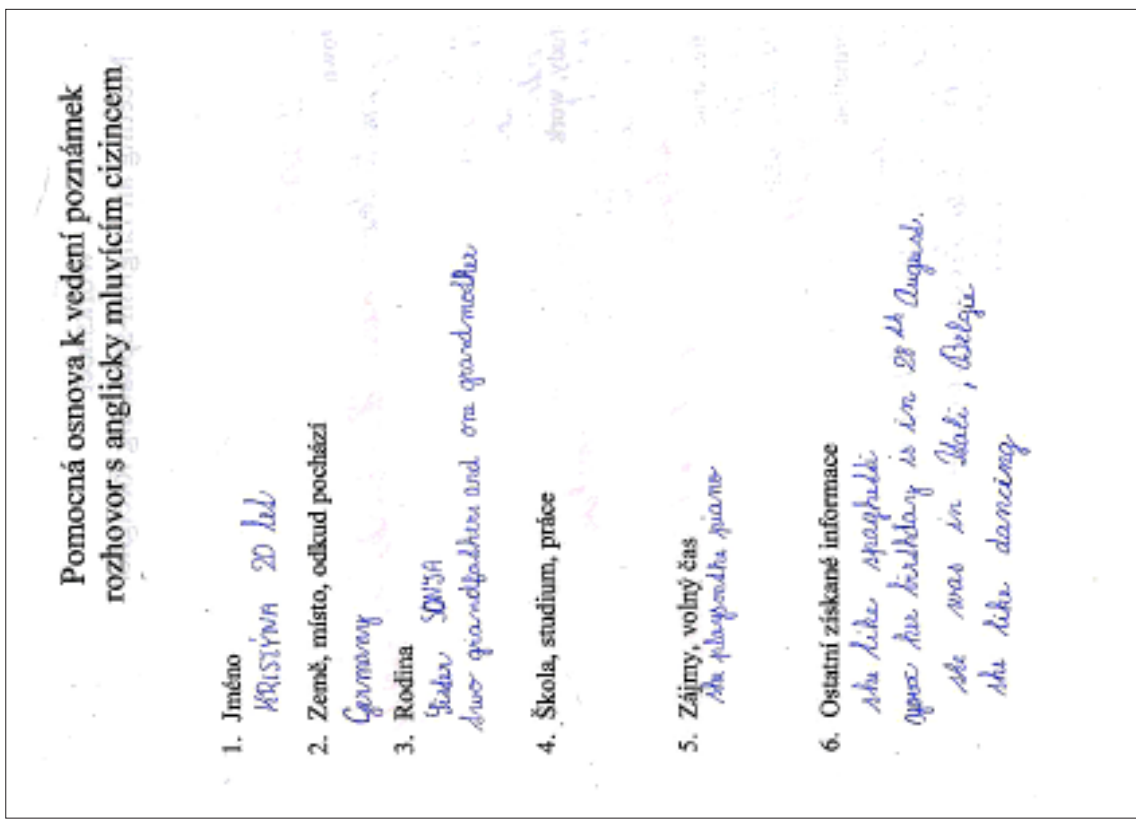 Pomocná osnova k vedení poznámek
rozhovor s anglicky mluvícím cizincem
1. Jméno
KRISTÝNA 20 let
2. Země, místo, odkud pochází
Germany
3. Rodina
Sister SONJA
two grandfathers and one grandmother
4. Škola, studium, práce
5. Zájmy, volný čas
she plays the piano
6. Ostatní získané informace
she like spaghetti
her birthday is in 28 th August.
she was in Itali, Belgie
she like dancing